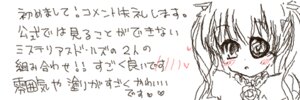 初めまして！コメント失礼します。
公式では見ることができない
ミステリアスドールズの2人の
組み合わせ!! すごく良いです
雰囲気や塗りがすごくかわいい
です♡♡